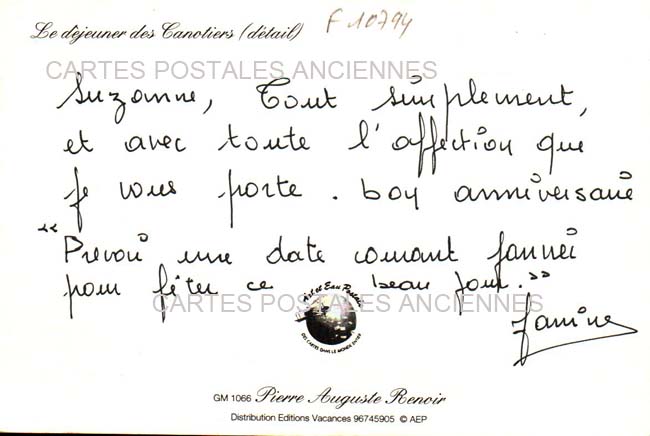 Le déjeuner des Canotiers (détail)
F 10794
CARTES POSTALES ANCIENNES
Suzanne, Tout simplement,
et avec toute l'affection que
je vous porte. bon anniversaire
"Prevoir une date courant janvier
pour fêter ce beau jour."
Art et Eau Postale
CARTES POSTALES ANCIENNES
DES CARTES DANS LE MONDE ENTIER
Janine
GM 1066 Pierre Auguste Renoir
Distribution Editions Vacances 96745905 © AEP